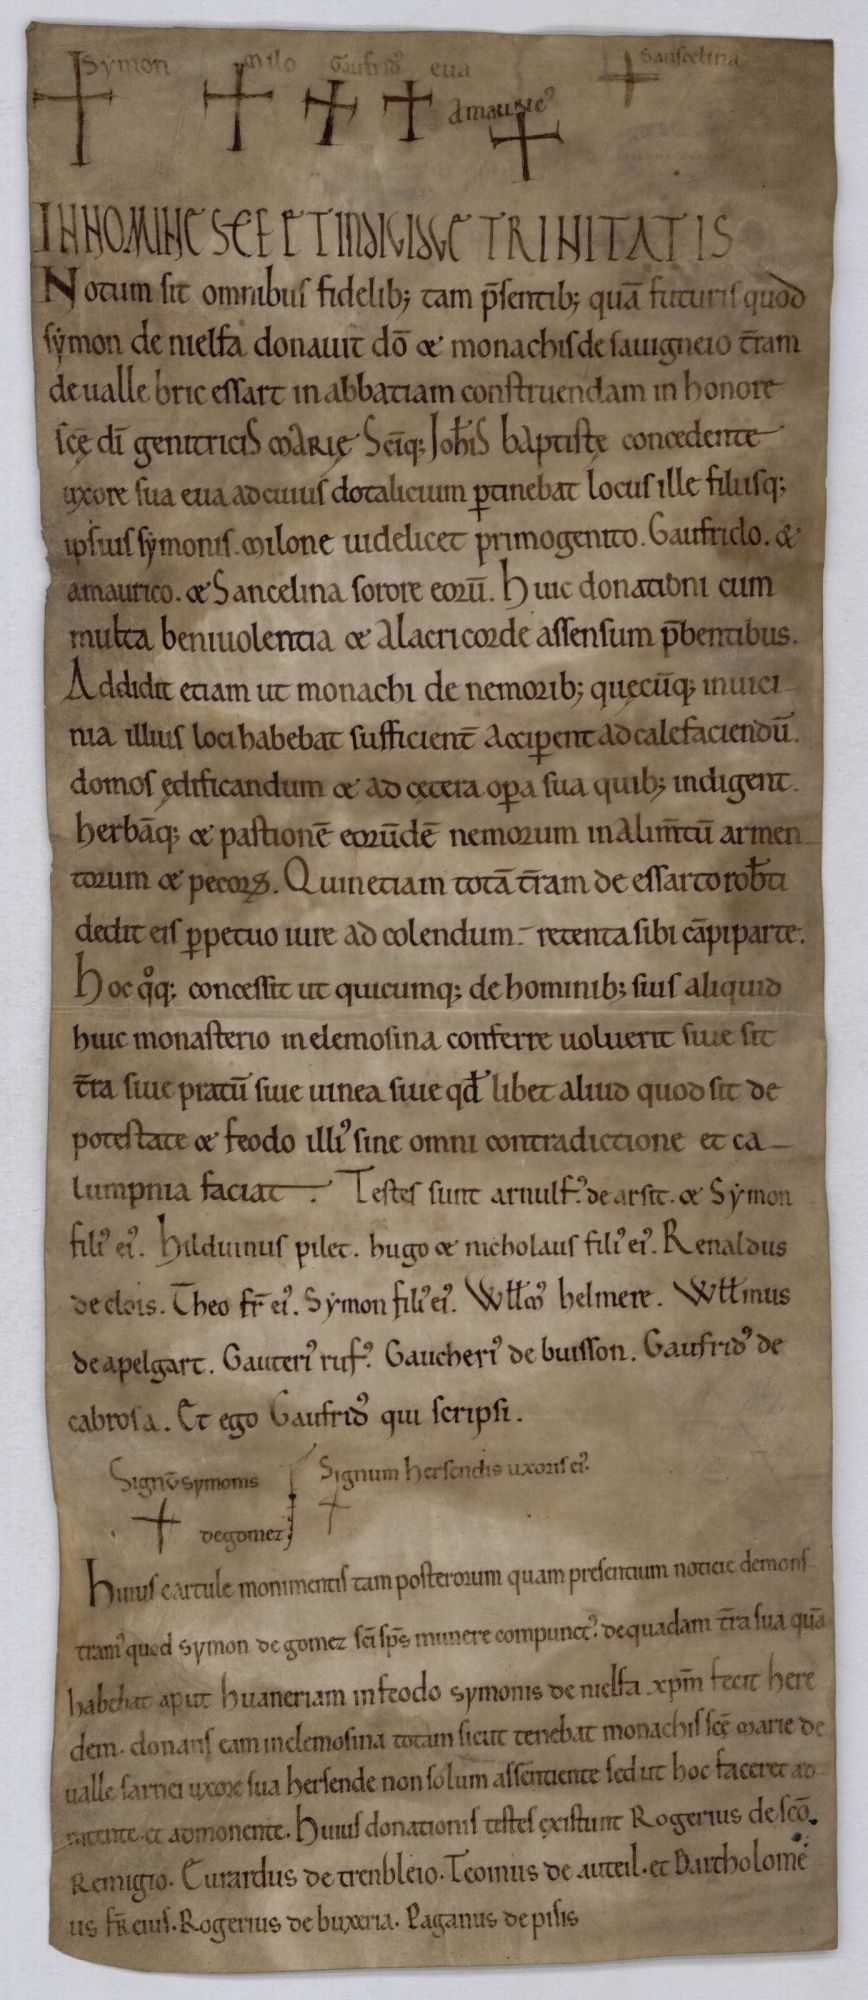 Symon milo Gaufridꝰ eua Sanscelina
amauricꝰ
IN NOMINE SCE ET INDIVIDUE TRINITATIS
Notum sit omnibus fidelib; tam p̄sentib; quā futuris quod
sẏmon de nielfa donauit dō & monachis de sauigneio t̄ram
de ualle bric essart in abbatiam construendam in honore
scę dī genitricis MARIĘ Scīq; Joh̄is baptistę concedente
uxore sua eua ad cuius dotalicium ꝑtinebat locus ille filiisq;
ipsius sẏmonis. milone uidelicet primogenito. Gaufrido. &
amaurico. & Sancelina sorore eorū. Huic donationi cum
multa beniuolentia & alacri corde assensum p̄bentibus.
Addidit etiam ut monachi de nemorib; quęcūq; in uici
nia illius loci habebat sufficient̄ acciꝑent ad calefaciendū.
domos ędificandum & ad cętera oꝑa sua quib; indigent.
herbāq; & pastionē eorūdē nemorum in alim̄tū armen
torum & pecorꝝ. Quin etiam totā t̄ram de essarto rob̄ti
dedit eis ꝑpetuo iure ad colendum. retenta sibi cāpi parte.
Hoc qͦq; concessit ut quicumq; de hominib; suis aliquid
huic monasterio in elemosina conferre uoluerit siue sit
t̄ra siue pratū siue uinea siue qđ libet aliud quod sit de
potestate & feodo illiꝰ sine omni contradictione et ca
lumpnia faciat. Testes sunt arnulfꝰ de arsit. & Sẏmon
filiꝰ eiꝰ. Hilduinus pilet. hugo & nicholaus filiꝰ eiꝰ. Renaldus
de clois. Theo fr̄ eiꝰ. Sẏmon filiꝰ eiꝰ. Włłmꝰ helmere. Włłmus
de apelgart. Gauteriꝰ rufꝰ. Gaucheriꝰ de buisson. Gaufridꝰ de
cabrosa. Et ego Gaufridꝰ qui scripsi.
Signū symonis Signum hersendis uxoris eiꝰ.
de gomez
Huius cartule monimentis tam posterorum quam presentium noticie demons
tramꝰ quod symon de gomez scī sp̄s munere compunctꝰ. de quadam t̄ra sua quā
habebat aput huaneriam in feodo symonis de nielfa xp̄m fecit here
dem. donans eam in elemosina totam sicut tenebat monachis scę marie de
ualle sarnei uxore sua hersende non solum assentiente sed ut hoc faceret ad
et admonente. Huius donationis testes existunt Rogerius de scō
Remigio. Eurardus de trenbleio. Teoinus de auteil. et Bartholome
us fr̄ eius. Rogerius de buxeria. Paganus de pisis